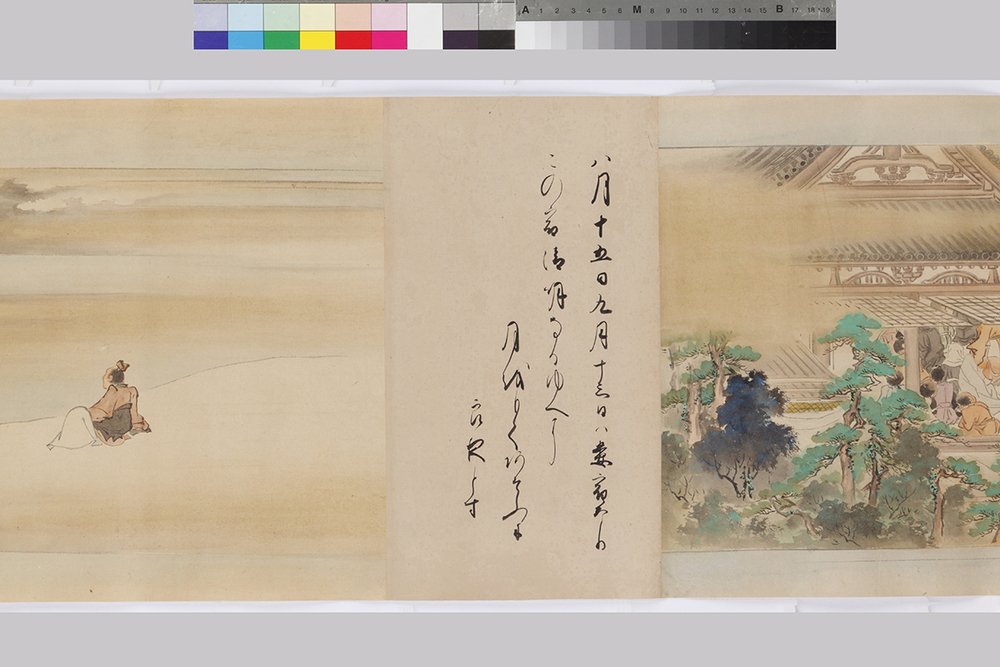 A 1 2 3 4 5 6 M 8 9 10 11 12 13 14 15 B 17 18 19
八月十五日九月十三日ハ婁宿なり
この宿清明なるゆへに
月をもてあそふに
良夜とす